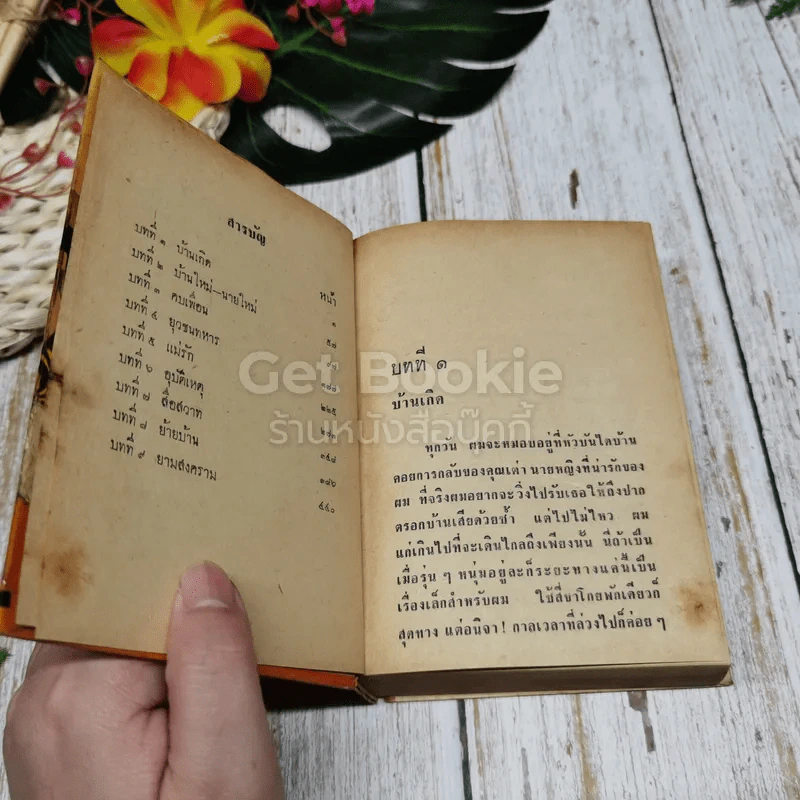 สารบัญ
หน้า
บทที่ ๑ บ้านเกิด ๑
บทที่ ๒ บ้านใหม่—นายใหม่ ๕๘
บทที่ ๓ คบเพื่อน
บทที่ ๔ ยุวชนทหาร
บทที่ ๕ แม่รัก ๒๒๕
บทที่ ๖ อุบัติเหตุ
บทที่ ๗ สื่อสวาท
บทที่ ๘ ย้ายบ้าน
บทที่ ๙ ยามสงคราม ๔๔๐
บทที่ ๑
บ้านเกิด
ทุกวัน ผมจะหมอบอยู่ที่หัวบันไดบ้าน
คอยการกลับของคุณเต่า นายหญิงที่น่ารักของ
ผม ที่จริงผมอยากจะวิ่งไปรับเธอให้ถึงปาก
ตรอกบ้านเสียด้วยซ้ำ แต่ไปไม่ไหว ผม
แก่เกินไปที่จะเดินไกลถึงเพียงนั้น นี่ถ้าเป็น
เมื่อรุ่น ๆ หนุ่มอยู่ละก็ระยะทางแค่นี้เป็น
เรื่องเล็กสำหรับผม ใช้สี่ขาโกยพักเดียวก็
สุดทาง แต่อนิจจา! กาลเวลาที่ล่วงไปก็ค่อย ๆ
Get Bookie
ร้านหนังสือบุ๊คกี้